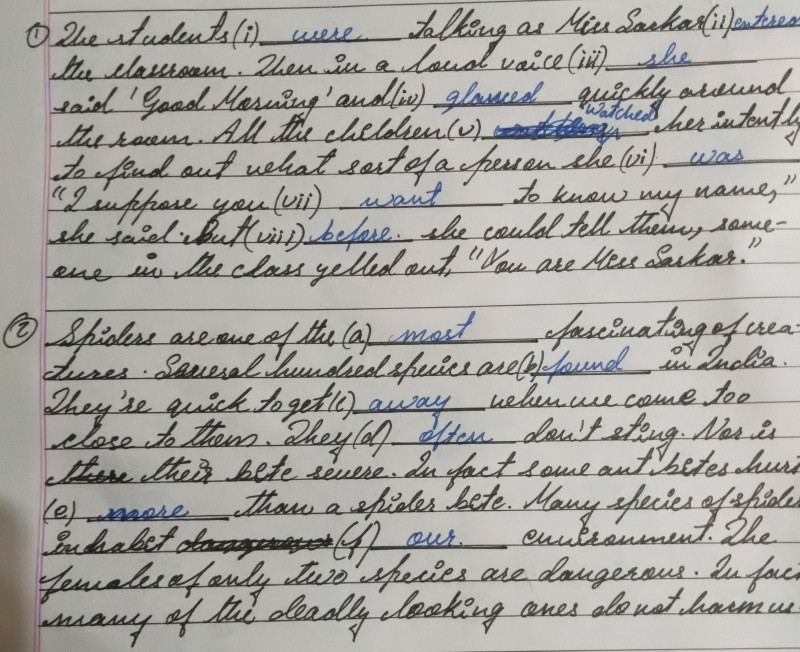 ① The students (i) were talking as Miss Sarkar (ii)
the classroom. Then in a loud voice (iii) she
said 'Good Morning' and (iv) glanced quickly around
the room. All the children (v) watched her intently
to find out what sort of a person she (vi) was
"I suppose you (vii) want to know my name,"
she said. But (viii) before she could tell them, some-
one in the class yelled out, "You are Miss Sarkar."
② Spiders are one of the (a) most fascinating of crea-
tures. Several hundred species are (b) found in India.
They're quick to get (c) away when we come too
close to them. They (d) often don't sting. Nor is
their bite severe. In fact some ant bites hurt
(e) more than a spider bite. Many species of spider
inhabit (f) our environment. The
females of only two species are dangerous. In fact
many of the deadly looking ones do not harm us